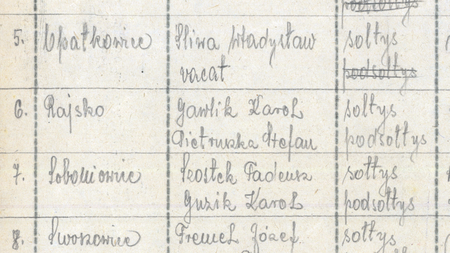 5. Opatkowice Śliwa Władysław sołtys
vacat podsołtys
6. Rajsko Gawlik Karol sołtys
Pietruszka Stefan podsołtys
7. Soboniowice Szostek Tadeusz sołtys
Guzik Karol podsołtys
8. Swoszowice Fremel Józef sołtys